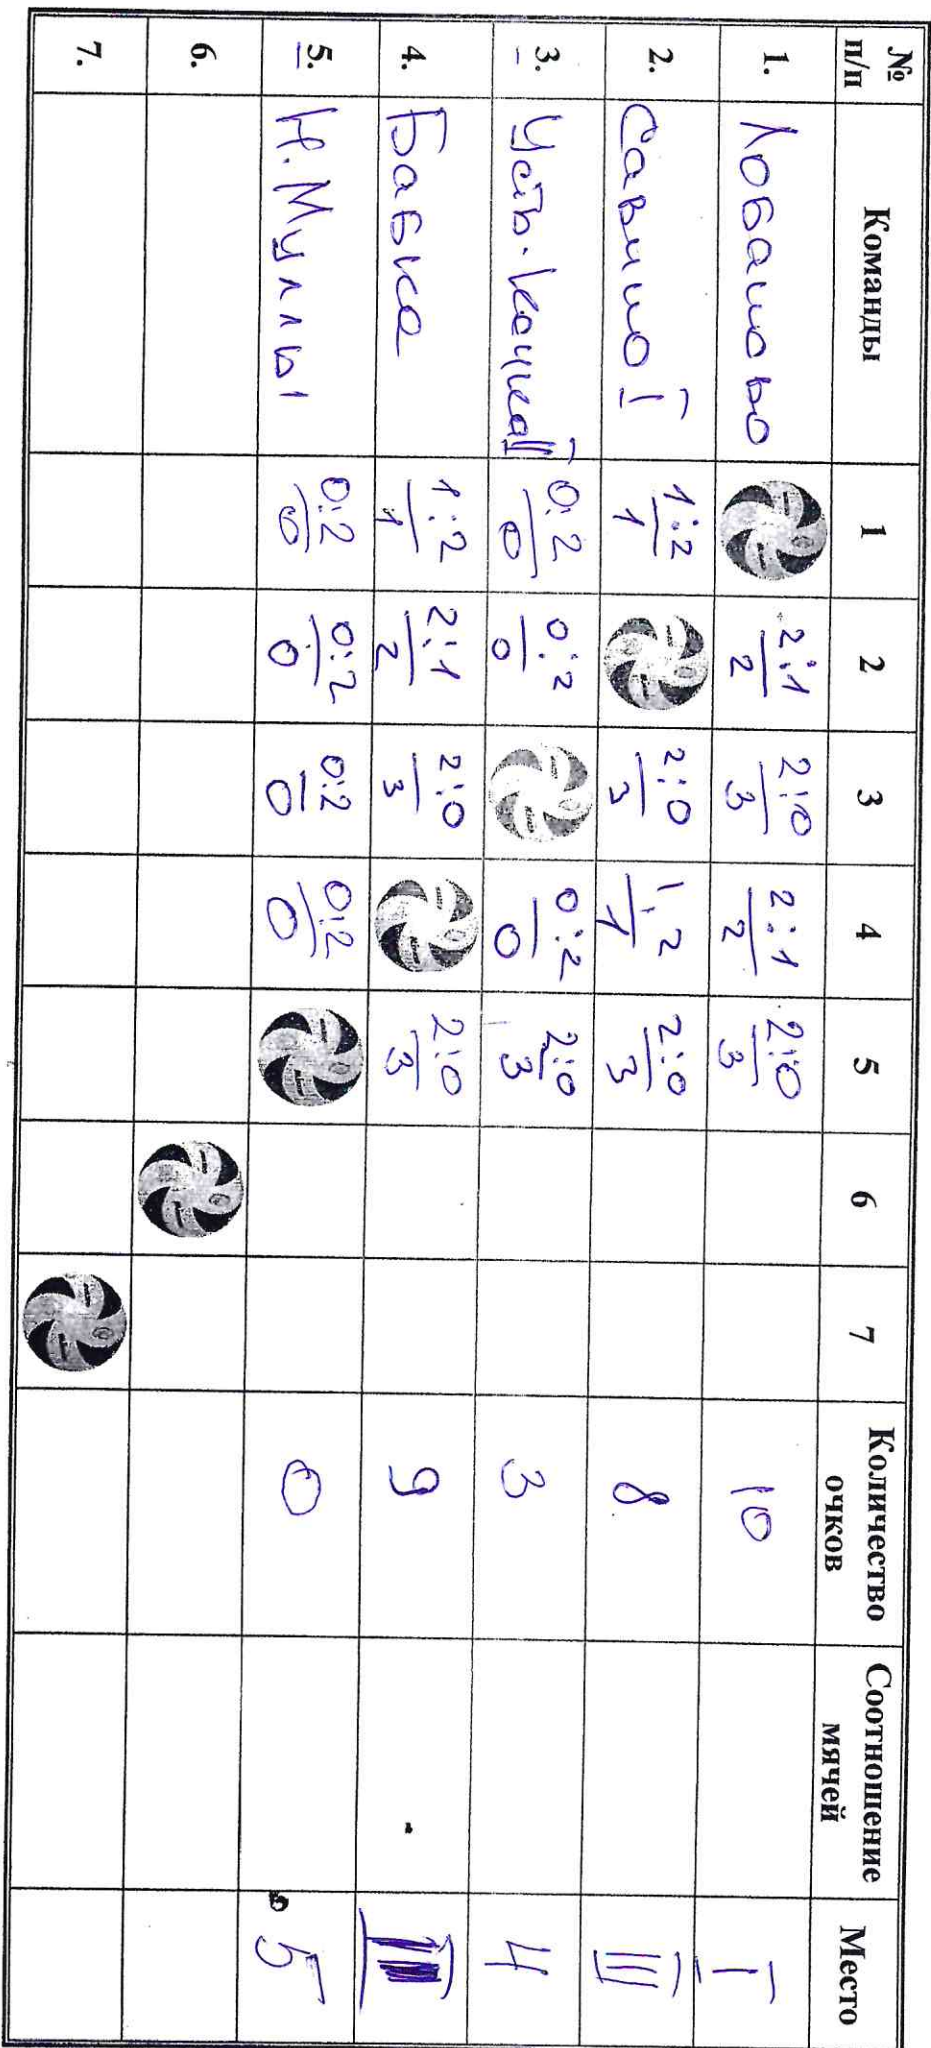 № п/п Команды 1 2 3 4 5 6 7 Количество очков Соотношение мячей Место
1. Лобаново 2:1 2 2:0 3 2:1 2 2:0 3 10 I
2. Савино I 1:2 1 2:0 3 1:2 1 2:0 3 8 III
3. Усть-Качка II 0:2 0 0:2 0 0:2 0 2:0 3 3 4
4. Бабка 1:2 1 2:1 2 2:0 3 2:0 3 9
5. Н. Муллы 0:2 0 0:2 0 0:2 0 0:2 0 0 5
6.
7.